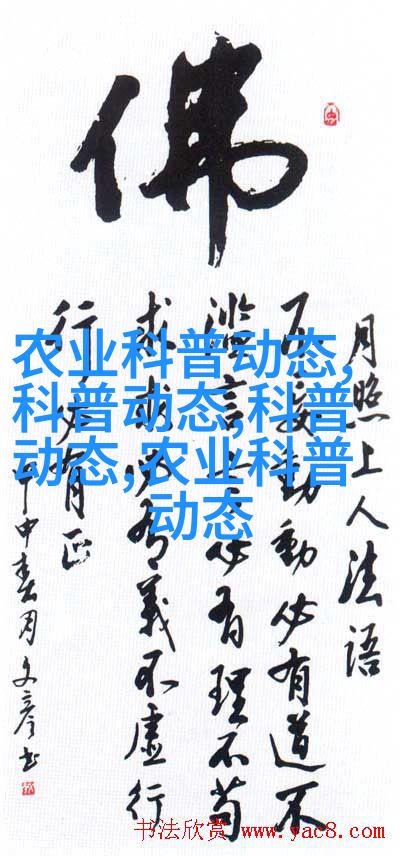 佛
月照上人法语
不妄動動必有道不
言必有理不苟
求求必有義不虚行
行必有正
甲申春月文彦书
农业科普动态,
科普动态,科普
动态,农业科普
动态
书法欣赏 www.yac8.com